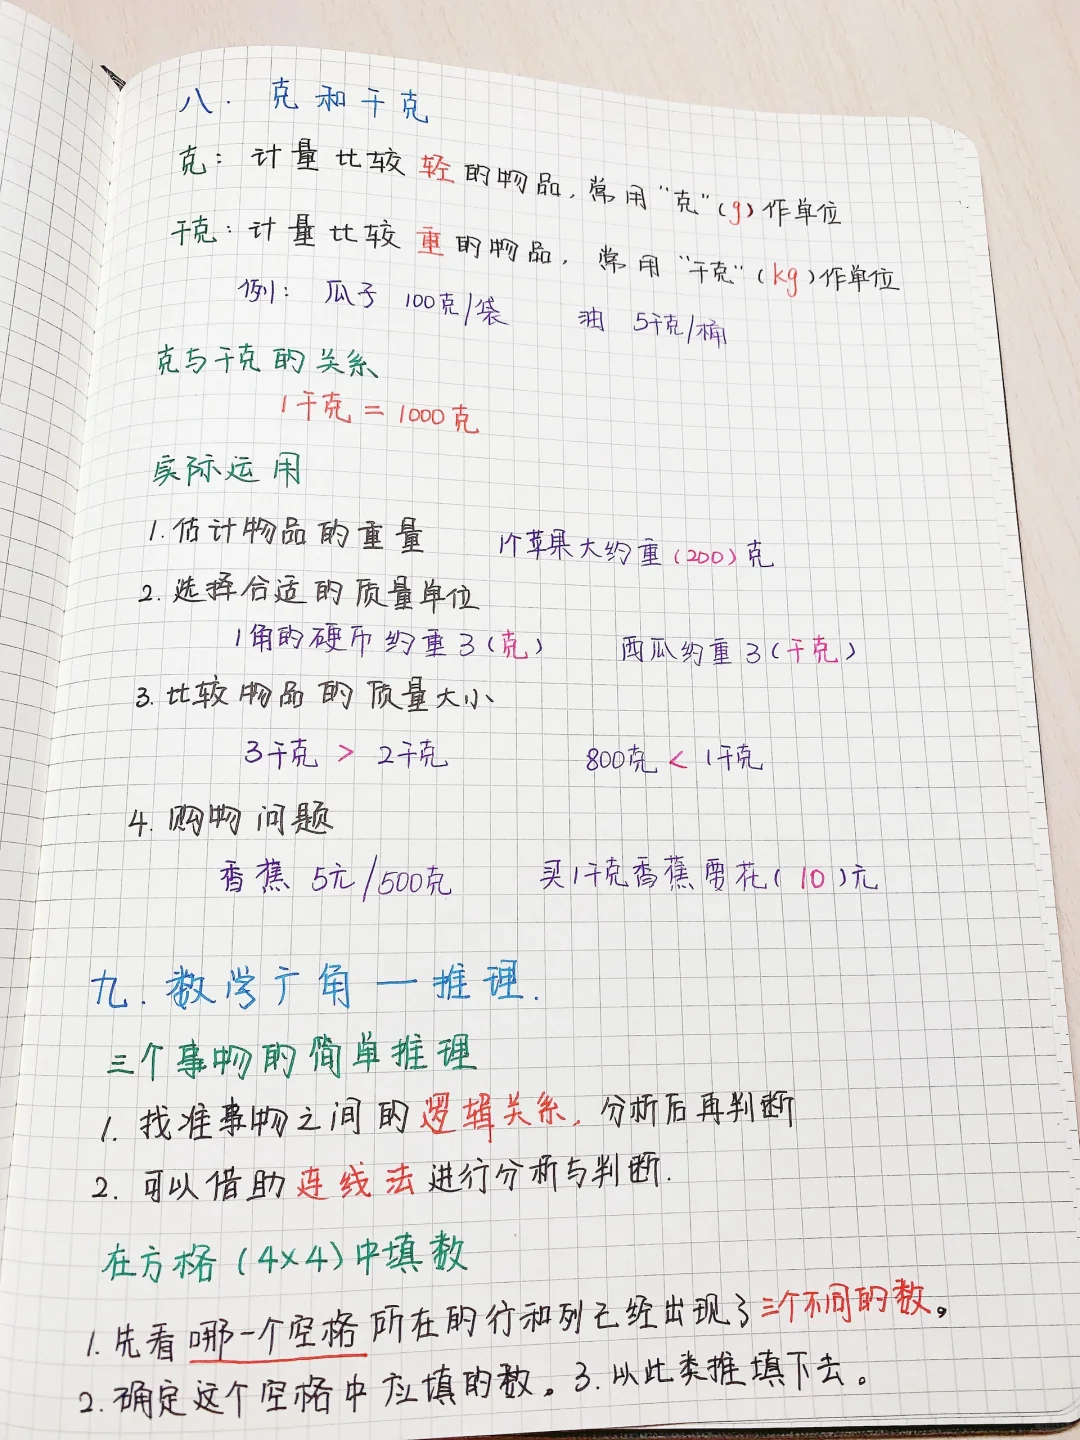 八. 克和千克
克: 计量比较轻的物品,常用"克"(g)作单位
千克: 计量比较重的物品, 常用"千克"(kg)作单位
例: 瓜子 100克/袋 油 5千克/桶
克与千克的关系
1千克=1000克
实际运用
1.估计物品的重量 1个苹果大约重(200)克
2.选择合适的质量单位
1角的硬币约重3(克) 西瓜约重3(千克)
3.比较物品的质量大小
3千克 > 2千克 800克 < 1千克
4.购物问题
香蕉 5元/500克 买1千克香蕉要花(10)元
九.数学广角一推理.
三个事物的简单推理
1.找准事物之间的逻辑关系,分析后再判断
2.可以借助连线法进行分析与判断.
在方格(4×4)中填数
1.先看哪一个空格所在的行和列已经出现了三个不同的数。
2.确定这个空格中应填的数。3.以此类推填下去。